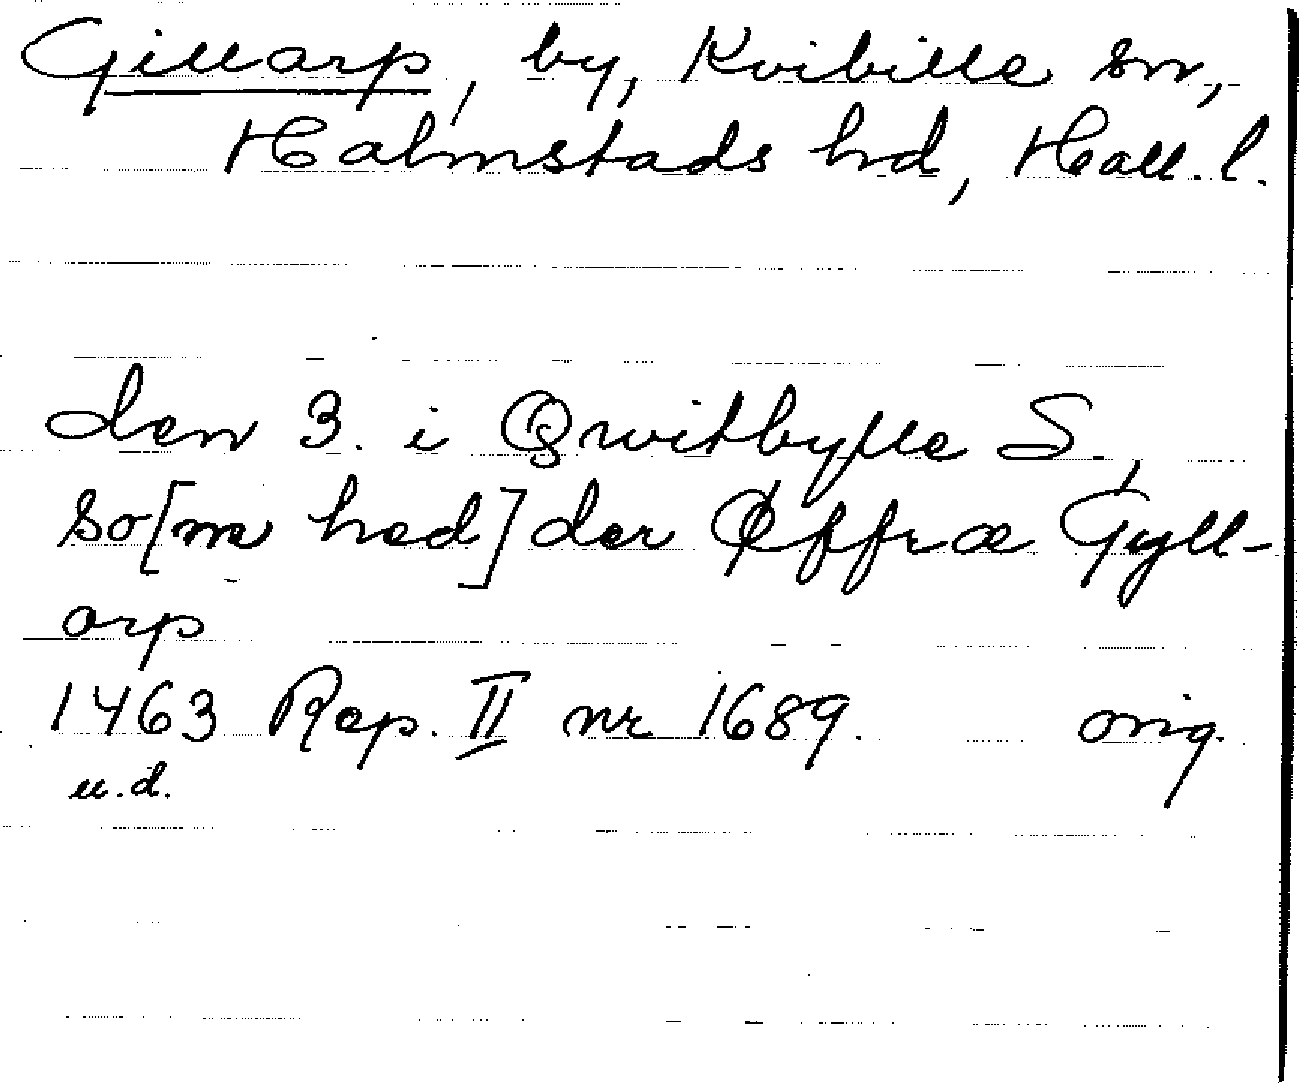 Gillarp, by, Kvibille sn,
Halmstads hd, Hall. l.
den 3. i Qwitbylle S.,
so[m hed]der Øffræ Gyll-
orp
1463 Rep. II nr 1689. orig.
u.d.